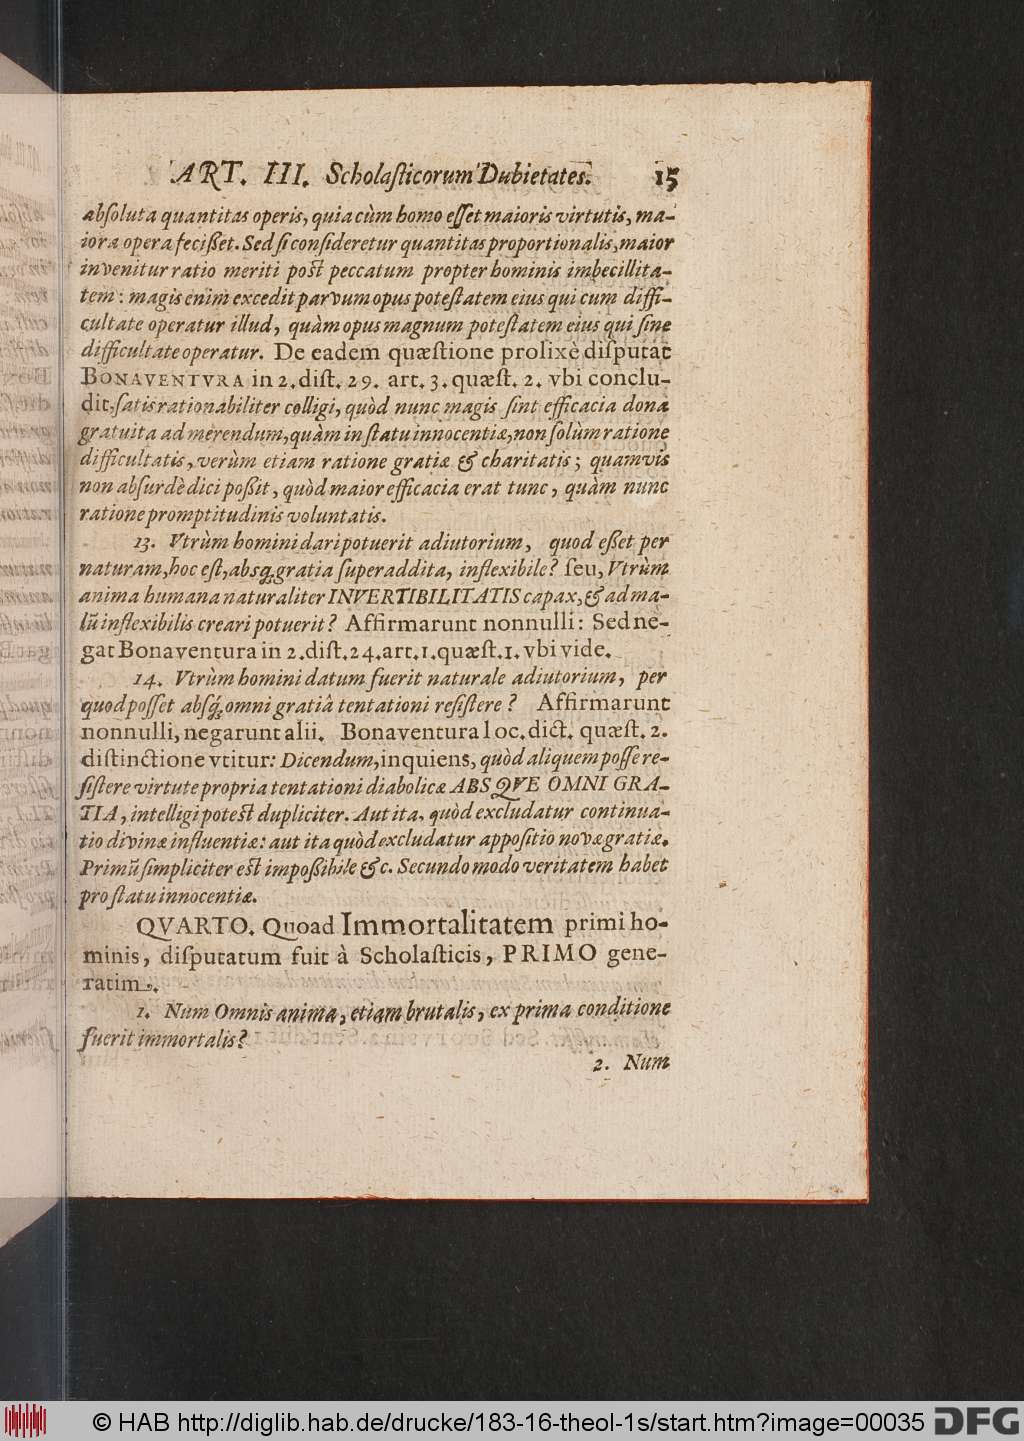 ART. III. Scholaſticorum Dubietates. 15
abſoluta quantitas operis, quia cùm homo eſſet maioris virtutis, ma-
iora opera feciſſet. Sed ſi conſideretur quantitas proportionalis, maior
invenitur ratio meriti poſt peccatum propter hominis imbecillita-
tem: magis enim excedit parvum opus poteſtatem eius qui cum diffi-
cultate operatur illud, quàm opus magnum poteſtatem eius qui ſine
difficultate operatur. De eadem quæſtione prolixè diſputat
BONAVENTVRA in 2. diſt. 29. art. 3. quæſt. 2. vbi conclu-
dit, ſatis rationabiliter colligi, quòd nunc magis ſint efficacia dona
gratuita ad merendum, quàm in ſtatu innocentiæ, non ſolùm ratione
difficultatis, verùm etiam ratione gratiæ & charitatis; quamvis
non abſurdè dici poßit, quòd maior efficacia erat tunc, quàm nunc
ratione promptitudinis voluntatis.
13. Vtrùm homini dari potuerit adiutorium, quod eßet per
naturam, hoc eſt, absq; gratia ſuperaddita, inflexibile? ſeu, Vtrùm
anima humana naturaliter INVERTIBILITATIS capax, & ad ma-
lū inflexibilis creari potuerit? Affirmarunt nonnulli: Sed ne-
gat Bonaventura in 2. diſt. 24. art. 1. quæſt. 1. vbi vide.
14. Vtrùm homini datum fuerit naturale adiutorium, per
quod poſſet abſq; omni gratiâ tentationi reſiſtere? Affirmarunt
nonnulli, negarunt alii. Bonaventura loc. dict. quæſt. 2.
diſtinctione vtitur: Dicendum, inquiens, quòd aliquem poſſe re-
ſiſtere virtute propria tentationi diabolicæ ABSQVE OMNI GRA-
TIA, intelligi poteſt dupliciter. Aut ita, quòd excludatur continua-
tio divinæ influentiæ: aut ita quòd excludatur appoſitio novæ gratiæ.
Primū ſimpliciter eſt impoßibile &c. Secundo modo veritatem habet
pro ſtatu innocentiæ.
QVARTO. Quoad Immortalitatem primi ho-
minis, diſputatum fuit à Scholaſticis, PRIMO gene-
ratim.
1. Num Omnis anima, etiam brutalis, ex prima conditione
fuerit immortalis?
2. Num
© HAB http://diglib.hab.de/drucke/183-16-theol-1s/start.htm?image=00035 DFG